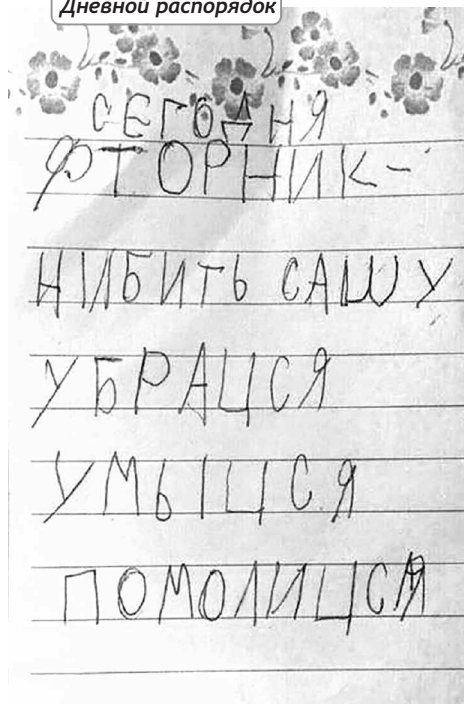 Дневной распорядок
СЕГОДНЯ
ФТОРНИК-
НИБИТЬ САШУ
УБРАЦСЯ
УМЫЦСЯ
ПОМОЛИЦСЯ